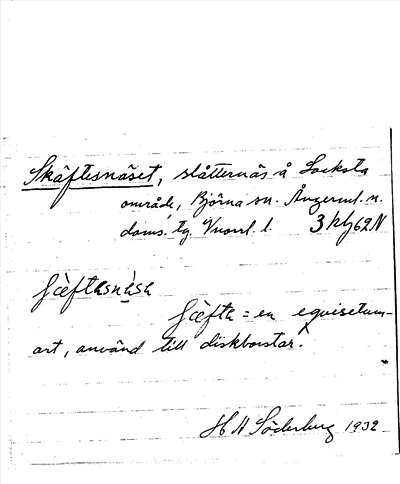 Skäftesnäset, slåtternäs å Locksta
område, Björna sn. Ångerml. n.
doms. tg. Vnorrl. l. 3 kbj 62 N
ʃæ̀ftesnàsa
ʃæ̀fta = en equisetum-
art, använd till diskborstar.
H N Söderberg 1932